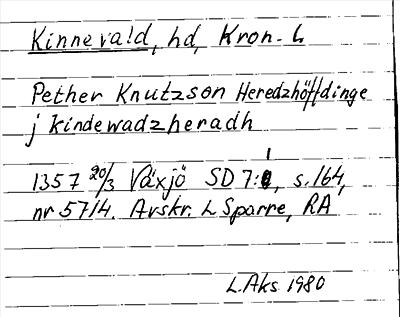 Kinnevald, hd, Kron. L
Pether Knutzson Heredzhöffdinge
j kindewadzheradh
1357 20/3 Växjö SD 7:1, s. 164,
nr 5714. Avskr. L Sparre, RA
L.Aks 1980